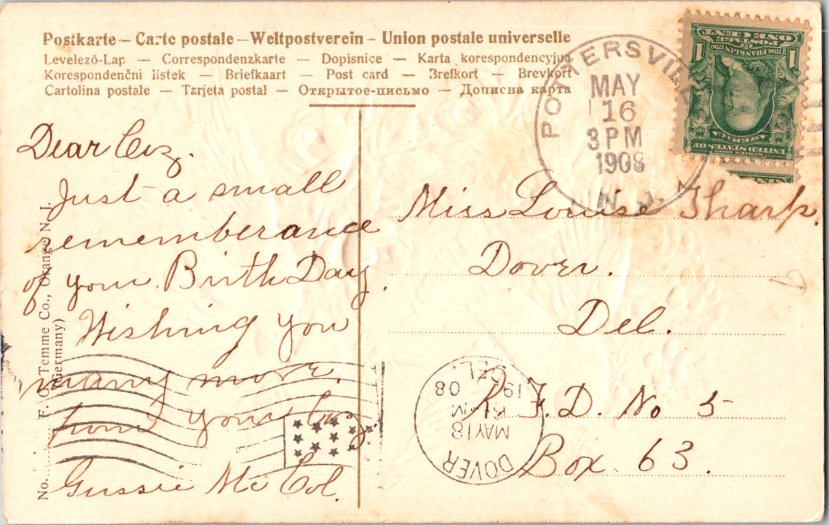 Postkarte – Carte postale – Weltpostverein – Union postale universelle
Levelező-Lap — Correspondenzkarte — Dopisnice — Karta korespondencyjna
Korespondenční listek — Briefkaart — Post card — Brefkort — Brevkort
Cartolina postale — Tarjeta postal — Открытое-письмо — Дописна карта
POTTERSVILLE
MAY
16
3 PM
1908
N. J.
UNITED STATES OF AMERICA
FRANKLIN
POSTAGE
ONE CENT
1 1
Dear Cuz.
Just a small
rememberance
of your Birth Day.
Wishing you
many more.
from your Cuz.
Gussie Mc Col.
Miss Louise Tharp.
Dover.
Del.
R. F. D. No 5
Box 63.
DOVER
MAY 18
PM
1908
DEL.
No. F. O. Temme Co., Orange N. J.
(Germany)